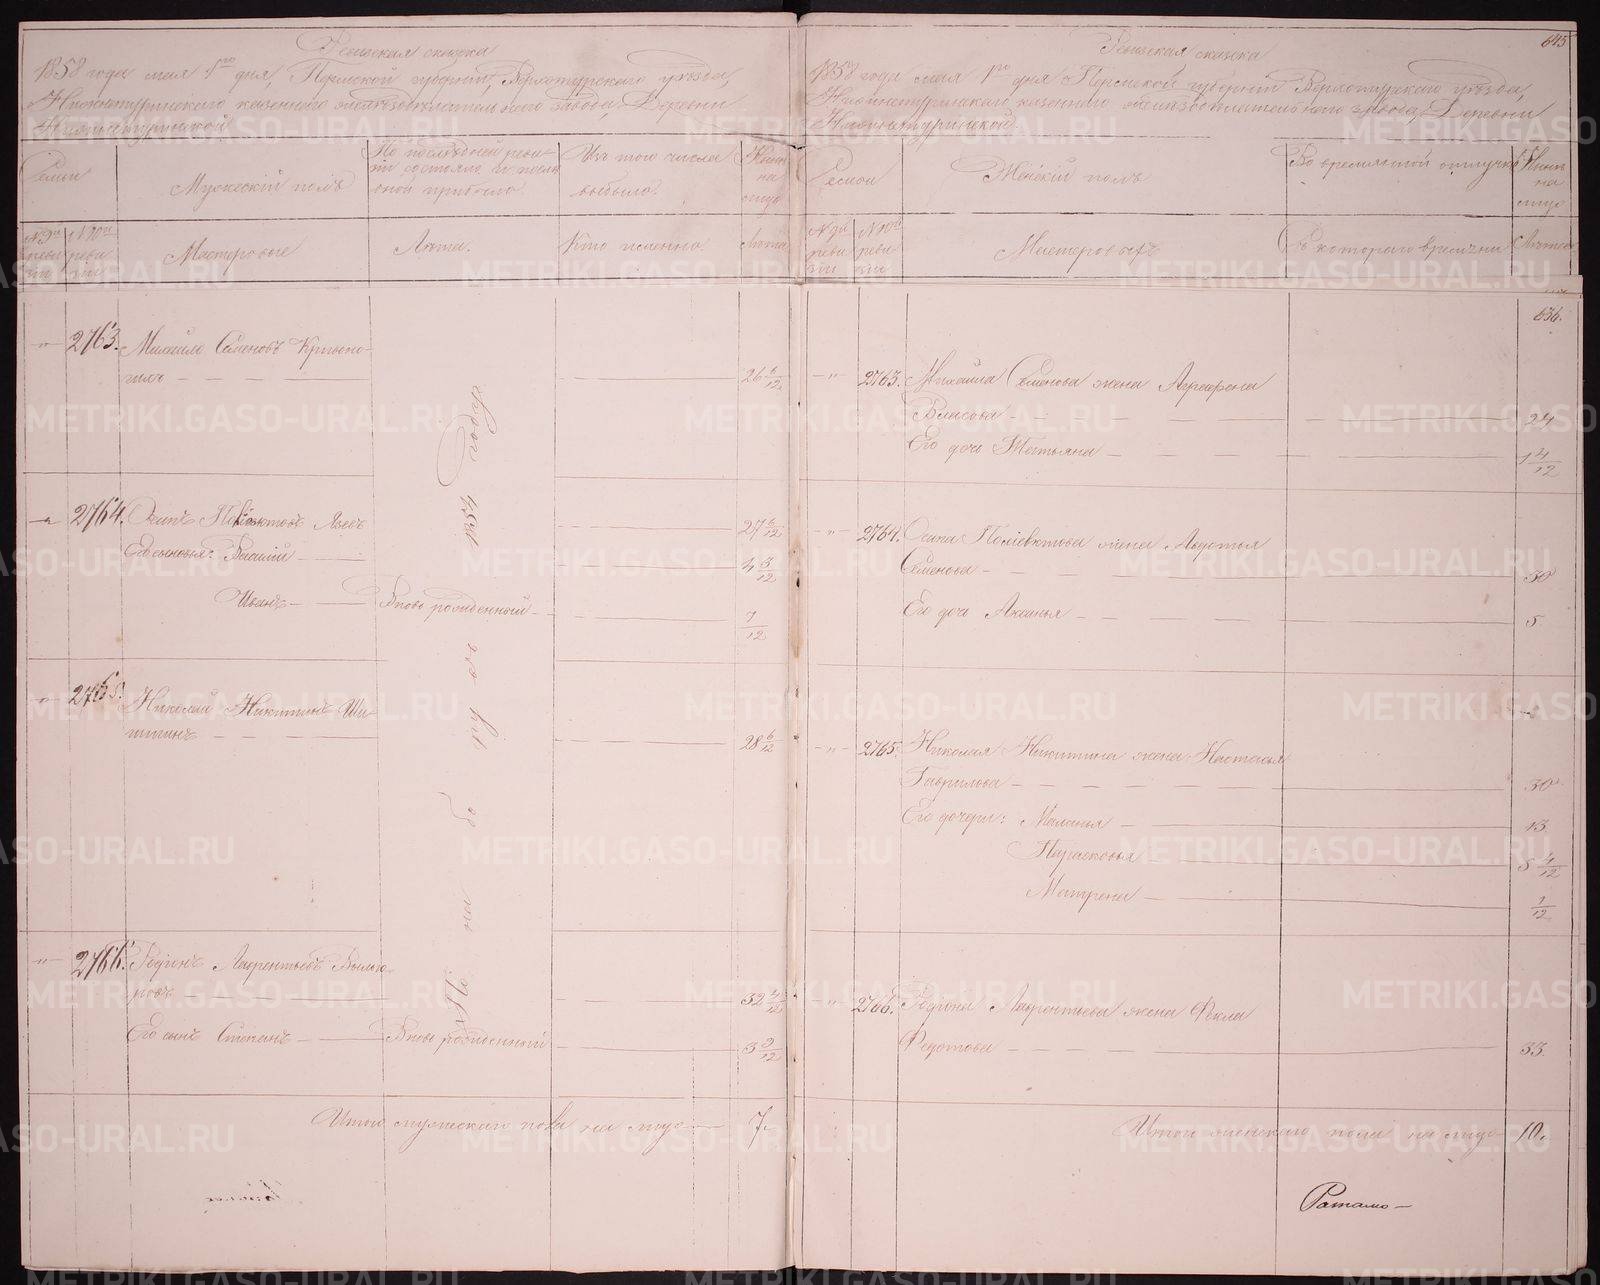 Ревизская сказка
1858 года мая 1го дня, Пермской губернии, Верхотурскаго уѣзда,
Нижнетуринскаго казеннаго желѣзодѣлательнаго завода, Деревни
Нижнетуринской
Семьи
Мужескій полъ
По послѣдней реви-
зіи состояло и послѣ
оной прибыло
Изъ того числа
выбыло.
Нынѣ
на
лицо
№ 9й
реви
зіи
№ 10й
реви
зіи
Мастеровые
Лѣта.
Кто именно
Лѣта
" 2763. Михайло Семеновъ Кривоно-
гихъ 26 6/12
2764. Осипъ Поліектовъ 27 6/12
Его сыновья: Василій 4 3/12
Иванъ Вновь рожденный 7/12
" 2765. Николай Никитинъ Ши-
шинъ 28 6/12
" 2766. Родіонъ Лаврентьевъ
32 4/12
Его сынъ Степанъ Вновь рожденный 3 9/12
Прибылъ съ 1857 года
Итого мужескаго пола на лицо 7.
645
Ревизская сказка
1858 года мая 1го дня Пермской губерніи Верхотурскаго уѣзда,
Нижнетуринскаго казеннаго желѣзодѣлательнаго завода, Деревни
Нижнетуринской.
Семьи
Женскій полъ
Во временной отлучкѣ
Нынѣ
на
лицо
№ 9й
реви
зіи
№ 10й
реви
зіи
Мастеровыхъ
Съ котораго времени
Лѣта
636.
" 2763. Михайла Семенова жена Аграфена
Власова 24
Его дочь Татьяна 1 4/12
" 2764. Осипа Поліевктова жена Авдотья
Семенова 30
Его дочь Аксинья 5
" 2765. Николая Никитина жена Настасья
Гаврилова 30
Его дочери: Маланья 13
Парасковья 8 4/12
Матрена 1/12
" 2766. Родіона Лаврентьева жена Фекла
Федотова 33.
Итого женскаго пола на лицо 10.
Ратамо
METRIKI.GASO-URAL.RU